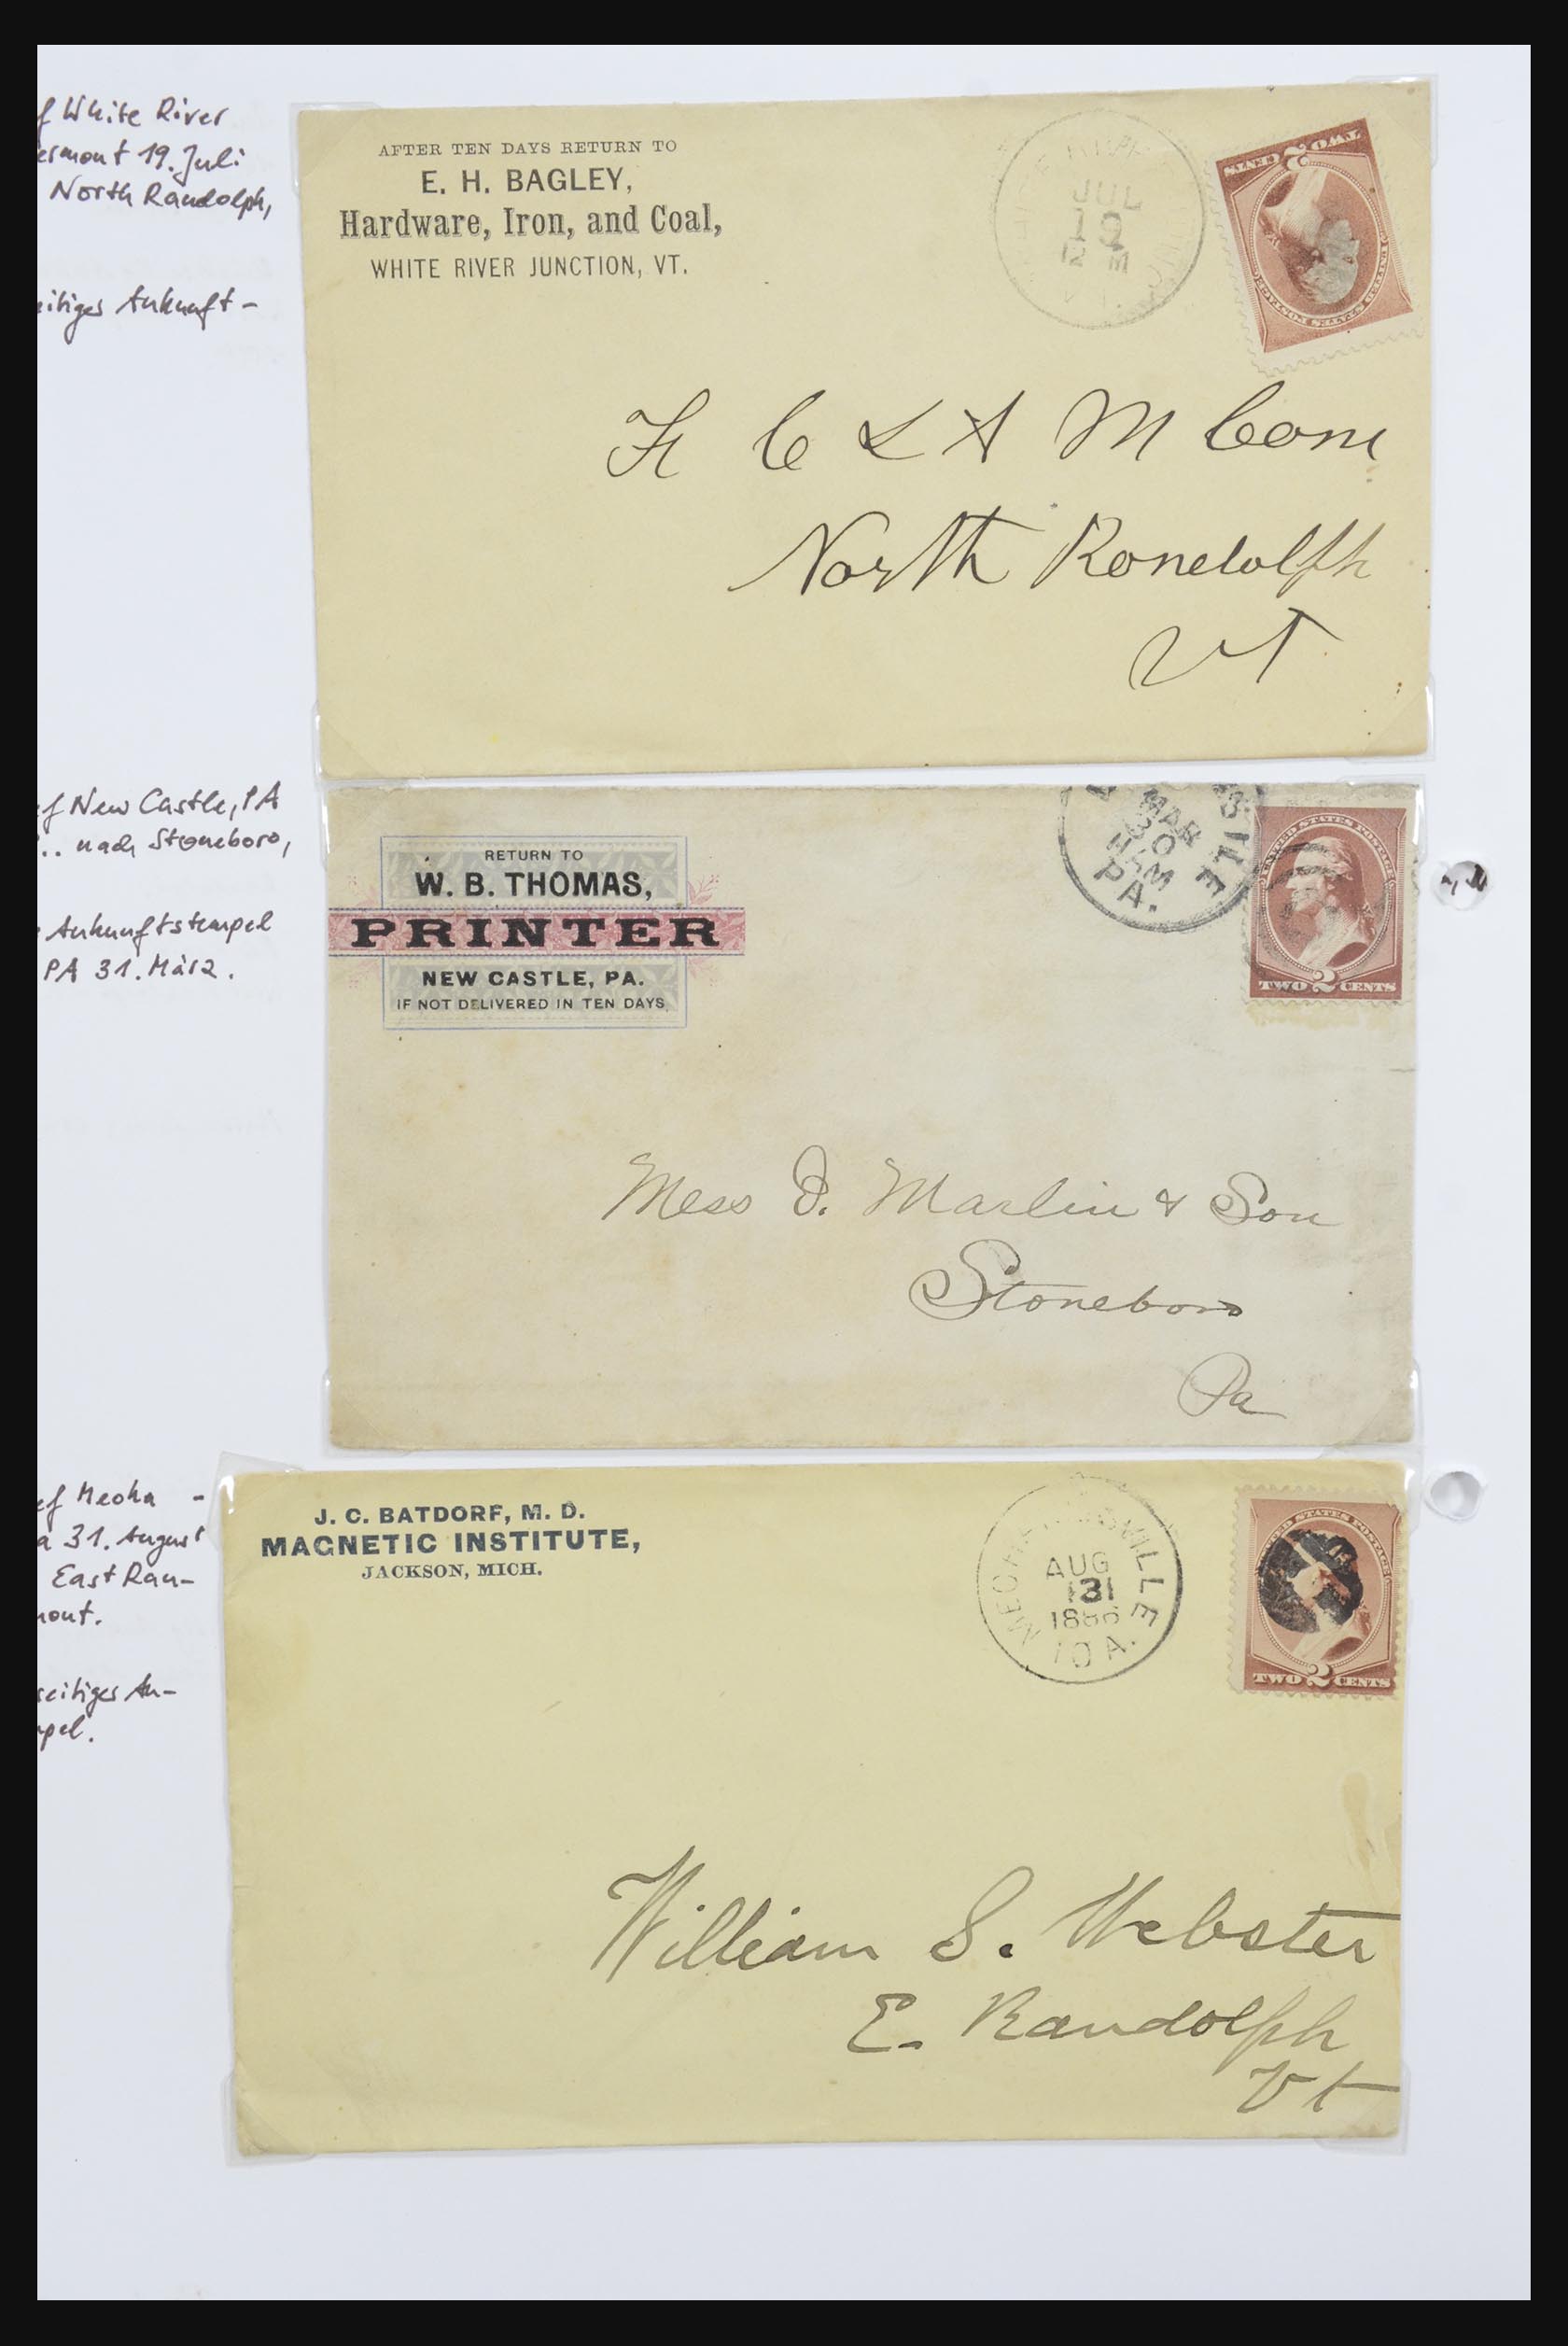 White River
19. Juli
North Randolph,
Ankunft-
AFTER TEN DAYS RETURN TO
E. H. BAGLEY,
Hardware, Iron, and Coal,
WHITE RIVER JUNCTION, VT.
JUL
19
12 M
TWO 2 CENTS
UNITED STATES POSTAGE
North Rondolph
VT
New Castle, PA
.. nach Stoneboro,
Ankunftstempel
PA 31. März.
RETURN TO
W. B. THOMAS,
PRINTER
NEW CASTLE, PA.
IF NOT DELIVERED IN TEN DAYS
MAR
30
PA.
UNITED STATES POSTAGE
TWO 2 CENTS
Mess J. Marlin & Son
Stoneboro
Pa
31. August
East Ran-
J. C. BATDORF, M. D.
MAGNETIC INSTITUTE,
JACKSON, MICH.
AUG
31
IOA.
UNITED STATES POSTAGE
TWO 2 CENTS
William S. Webster
E. Randolph
Vt